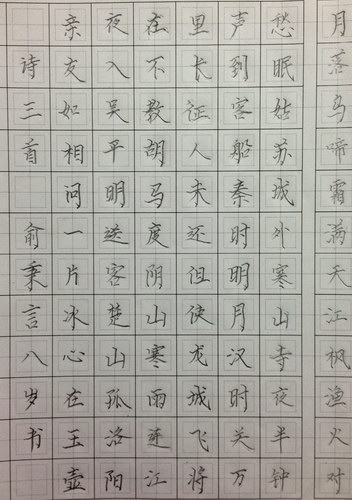 月落乌啼霜满天江枫渔火对
愁眠姑苏城外寒山寺夜半钟
声到客船秦时明月汉时关万
里长征人未还但使龙城飞将
在不教胡马度阴山寒雨连江
夜入吴平明送客楚山孤洛阳
亲友如相问一片冰心在玉壶
诗三首 俞秉言八岁书